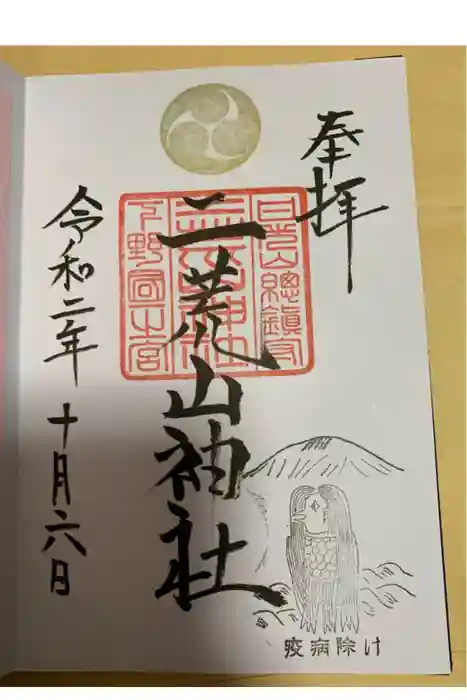 奉拝
日光山總鎮守
二荒山神社
下野國一之宮
令和二年 十月六日
疫病除け